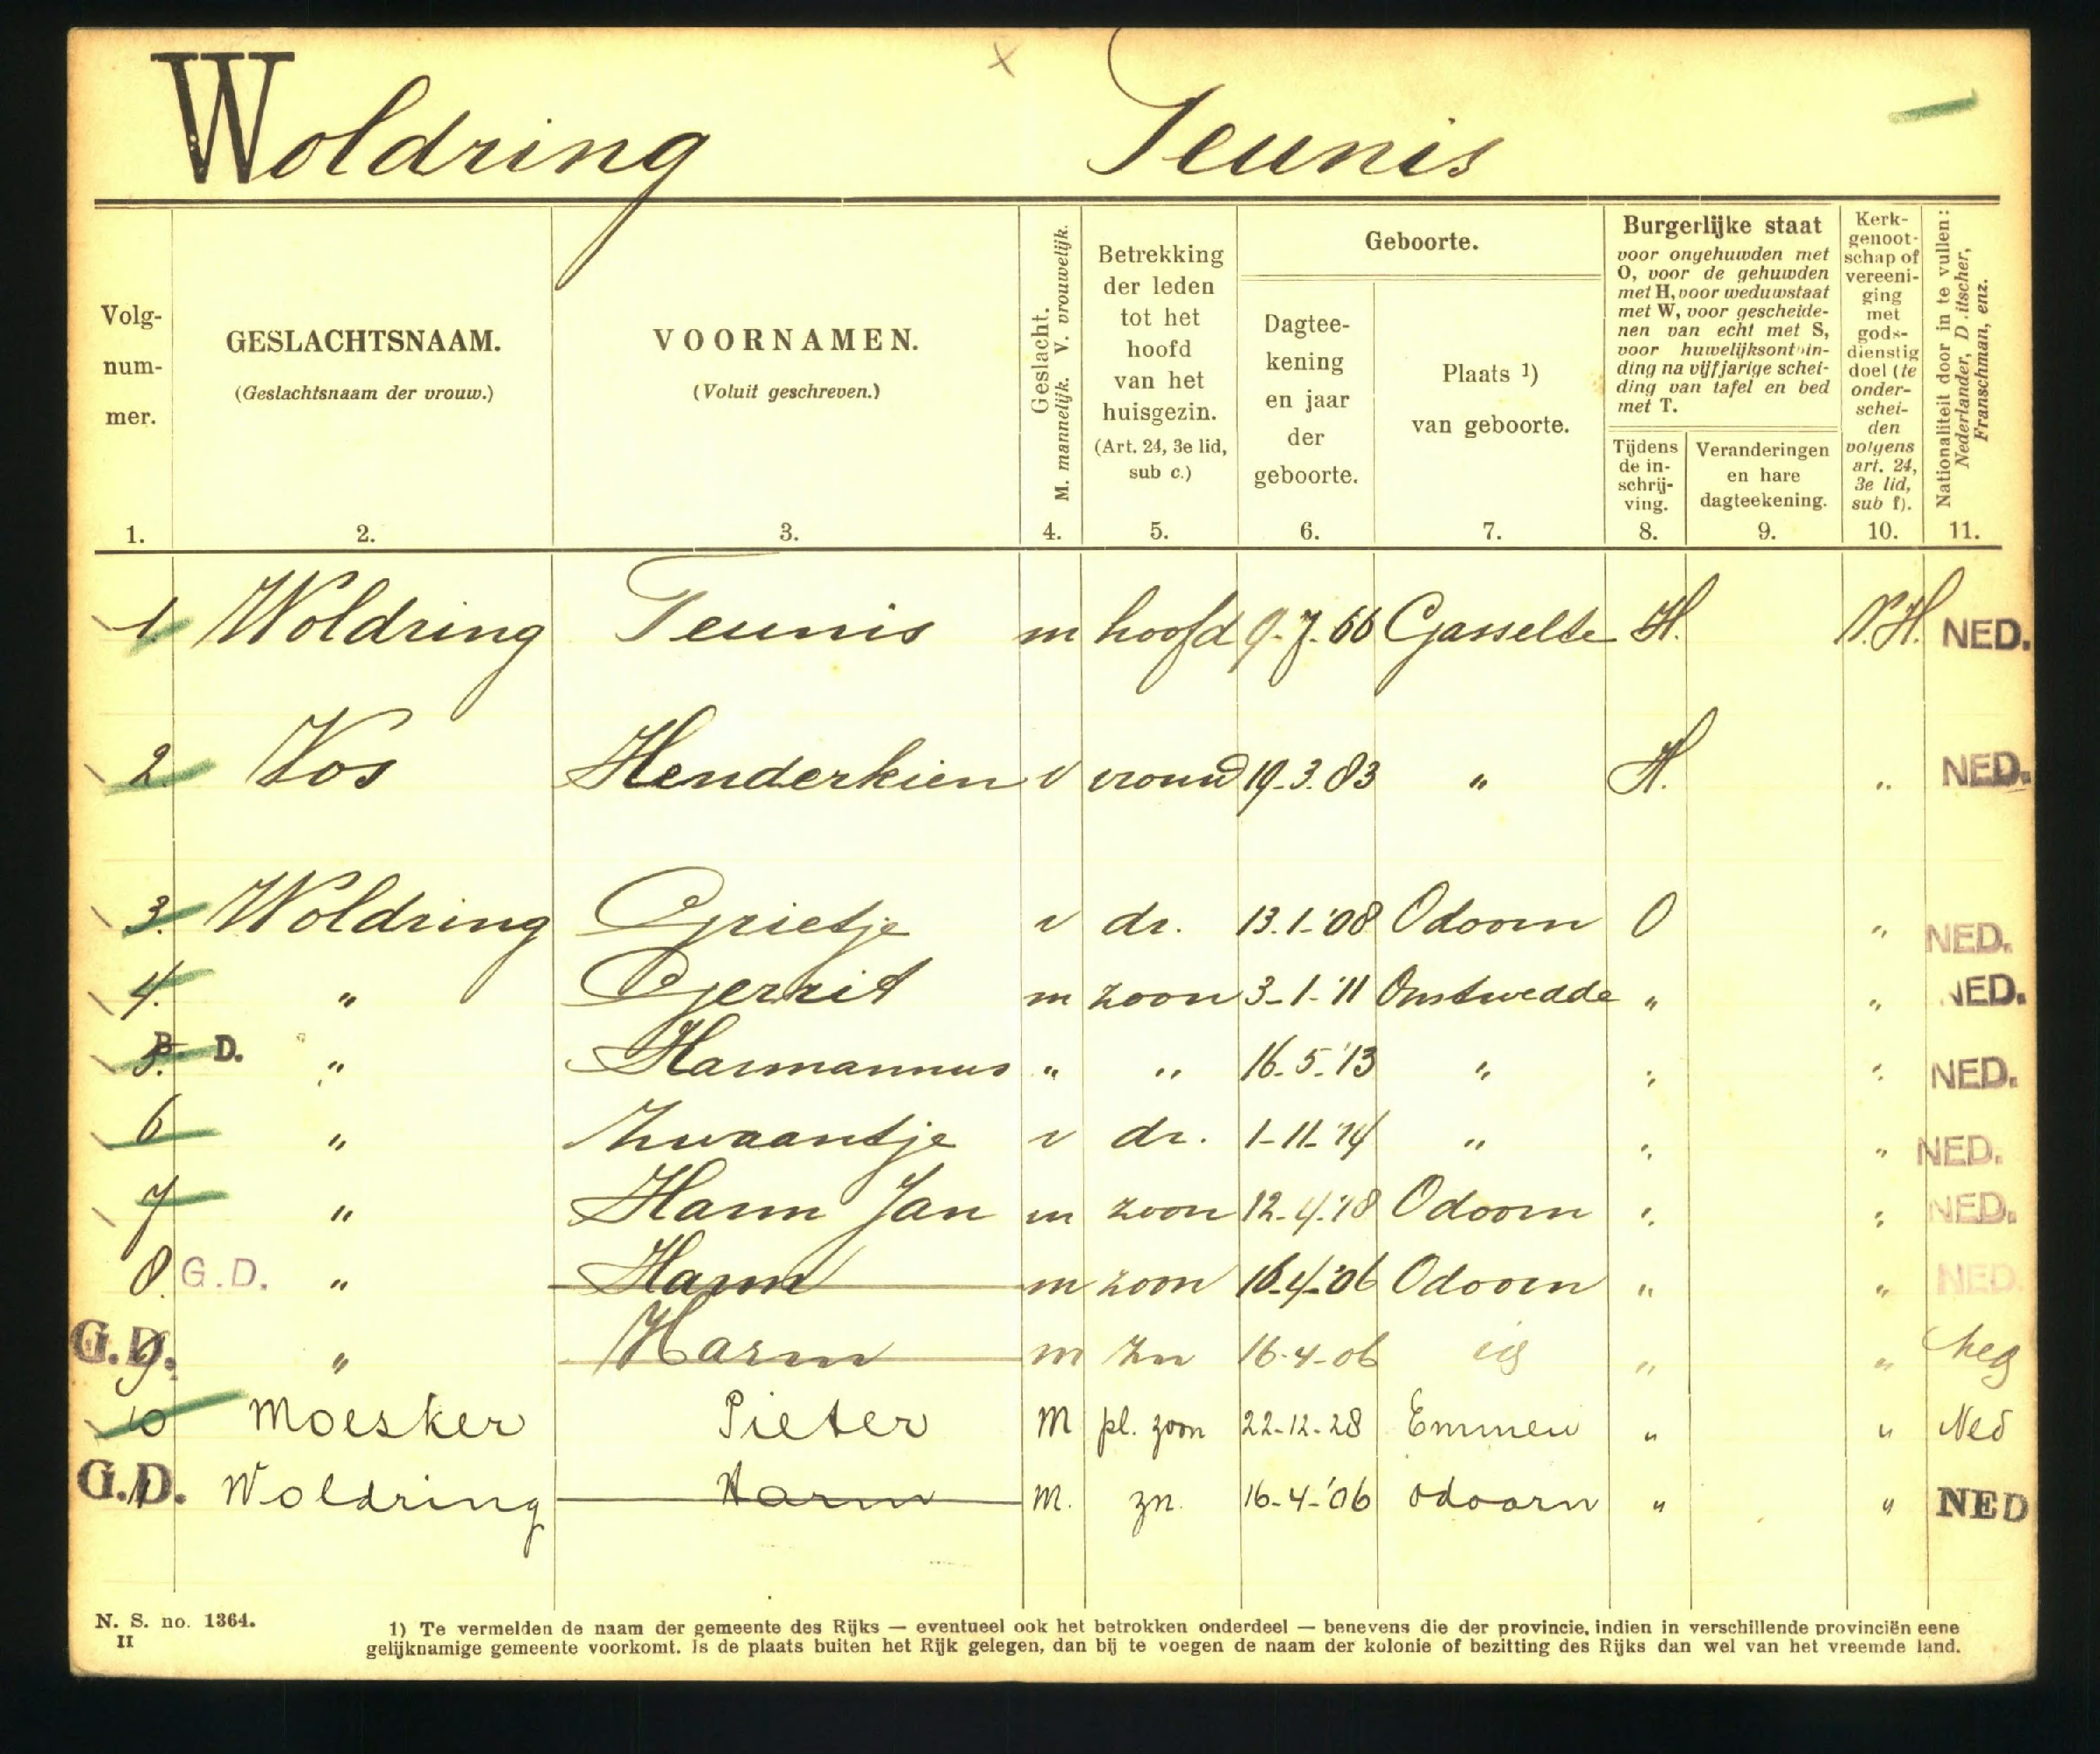 Woldring Teunis
Volg-
num-
mer.
1.
GESLACHTSNAAM.
(Geslachtsnaam der vrouw.)
2.
VOORNAMEN.
(Voluit geschreven.)
3.
Geslacht.
M. mannelijk. V. vrouwelijk.
4.
Betrekking
der leden
tot het
hoofd
van het
huisgezin.
(Art. 24, 3e lid,
sub c.)
5.
Geboorte.
Dagtee-
kening
en jaar
der
geboorte.
6.
Plaats 1)
van geboorte.
7.
Burgerlijke staat
voor ongehuwden met
O, voor de gehuwden
met H, voor weduwstaat
met W, voor gescheide-
nen van echt met S,
voor huwelijksontbin-
ding na vijfjarige schei-
ding van tafel en bed
met T.
Tijdens
de in-
schrij-
ving.
8.
Veranderingen
en hare
dagteekening.
9.
Kerk-
genoot-
schap of
vereeni-
ging
met
gods-
dienstig
doel (te
onder-
schei-
den
volgens
art. 24,
3e lid,
sub f).
10.
Nationaliteit door in te vullen:
Nederlander, D.itscher,
Franschman, enz.
11.
1. Woldring Teunis m hoofd 9-7-66 Gasselte H. N.H. NED.
2 Vos Henderkien v vrouw 19-3-83 " H. " NED.
3. Woldring Grietje v dr. 13-1-'08 Odoorn O " NED.
4. " Gerrit m zoon 3-1-'11 Onstwedde " " NED.
5. B. D. " Harmannus " " 16-5-'13 " " " NED.
6 " Zwaantje v dr. 1-11-'14 " " " NED.
7 " Harm Jan m zoon 12-4-'18 Odoorn " " NED.
8. G.D. " Harm m zoon 16-4-'06 Odoorn " " NED.
G.D. 9. " Harm m zn 16-4-06 " "
10 Moesker Pieter M pl. zoon 22-12-28 Emmen " " Ned
G.D. 11 Woldring Harm M. zn. 16-4-'06 odoorn " " NED
N. S. no. 1364.
II
1) Te vermelden de naam der gemeente des Rijks — eventueel ook het betrokken onderdeel — benevens die der provincie, indien in verschillende provinciën eene
gelijknamige gemeente voorkomt. Is de plaats buiten het Rijk gelegen, dan bij te voegen de naam der kolonie of bezitting des Rijks dan wel van het vreemde land.